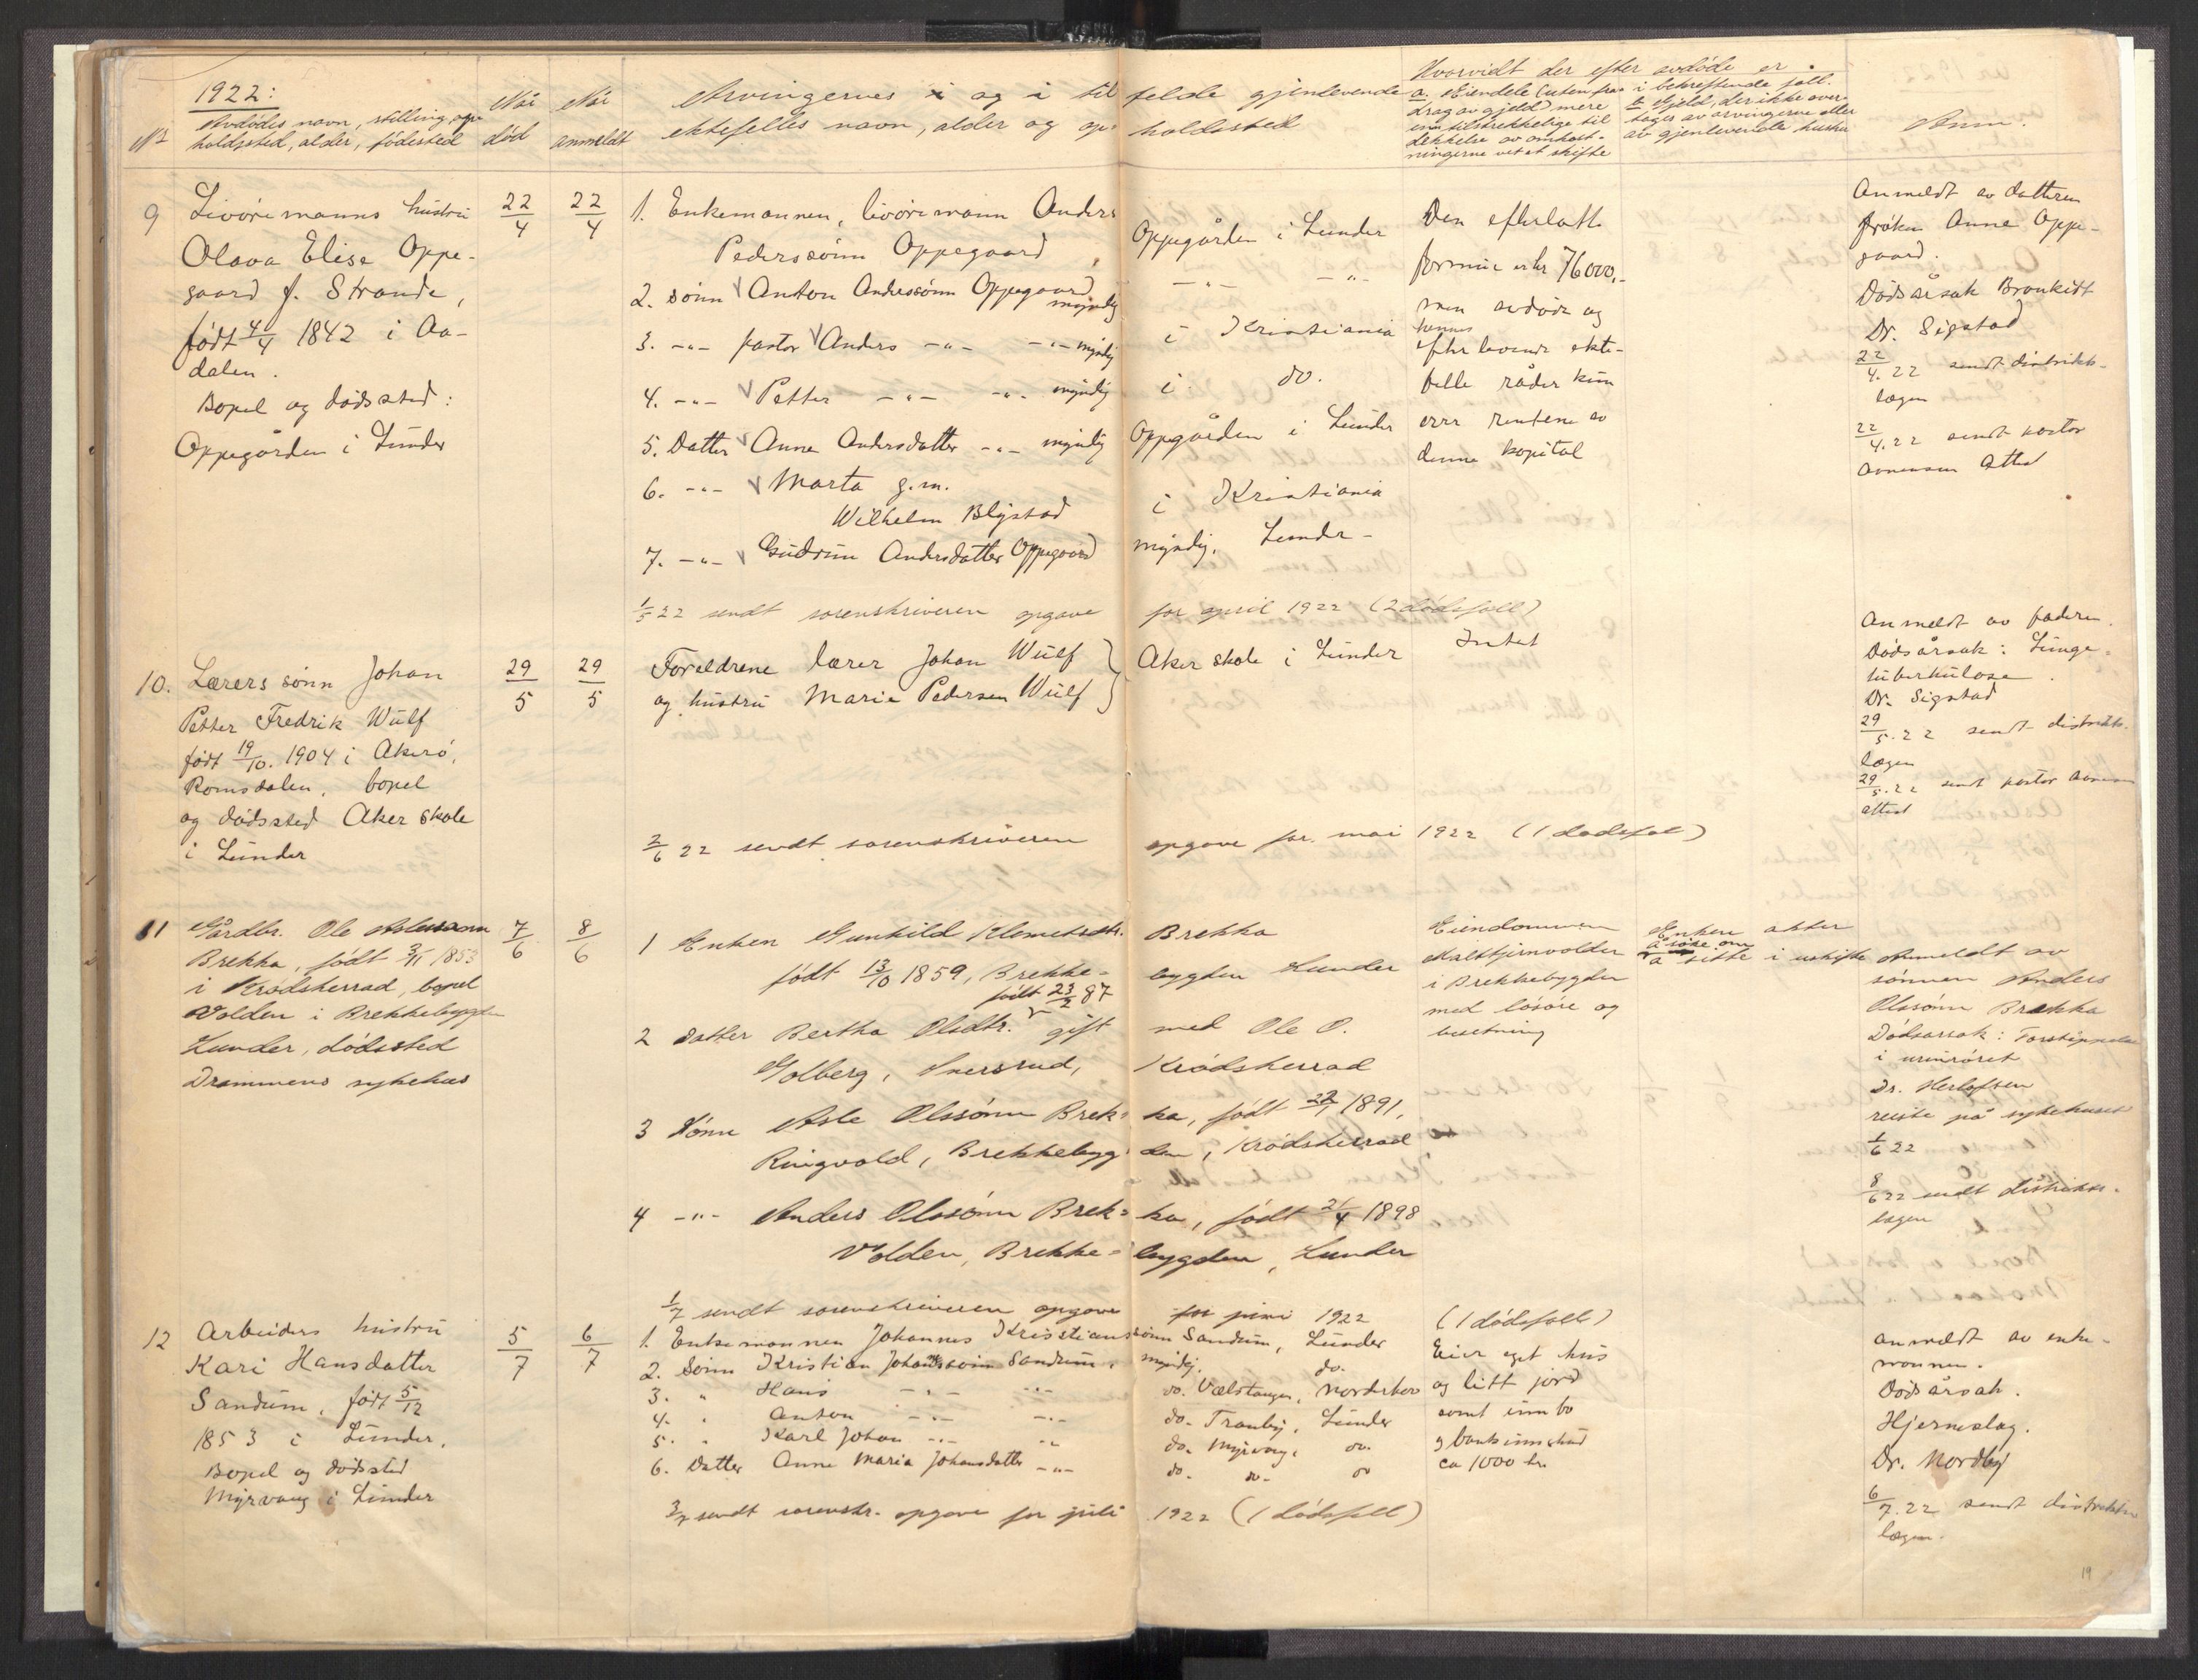 1922:
No Avdødes navn, stilling, op-
holdssted, alder, fødested
Når
død
Når
anmeldt
Arvingernes og i tilfelde gjenlevende
ektefelles navn, alder og opholdssted
Hvorvidt der efter avdøde er
a. Eiendele (uten fra-
drag av gjeld) mere
enn tilstrekkelige til
dekkelse av omkost-
ningerne ved et skifte
i bekreftende fall:
b. Gjeld, der ikke over-
tages av arvingerne eller
av gjenlevende
Anm.
9 Livøremanns hustru
Olava Elise Oppe-
gaard f. Strande,
født 4/4 1842 i Aa-
dalen.
Bopel og dødssted:
Oppegården i Lunder
22/4
22/4
1. Enkemannen, livøremann Anders
Pederssønn Oppegaard, Oppegården i Lunder
2. sønn Anton Anderssønn Oppegaard myndig -"- -"-
3. -"- pastor Anders -"- -"- myndig i Kristiania
4. -"- Petter -"- -"- myndig i do.
5. Datter Anna Andersdatter -"- myndig Oppgården i Lunder
6. -"- Marta g.m.
Wilhelm Blystad i Kristiania
7. -"- Gudrun Andersdatter Oppegaard myndig, Lunder -
Den efterlatte
formue er kr 76000,-
men avdøde og
hennes
efterlevende ekte-
felle råder kun
over rentene av
denne kapital
Anmeldt av datteren
frøken Anna Oppe-
gaard.
Dødsårsak Bronkitt
Dr. Sigstad
22/4.22 sendt distrikts-
lægen
22/4.22 sendt pastor
attest
1/5 22 sendt sorenskriveren opgave for april 1922 (2 dødsfall)
10. Lærers sønn Johan
Petter Fredrik Wulf
født 19/10. 1904 i Akerø,
Romsdalen, bopel
og dødssted Aker skole
i Lunder
29/5
29/5
Foreldrene lærer Johan Wulf
og hustru Marie Pedersen Wulf
Aker skole i Lunder
Intet
Anmeldt av faderen.
Dødsårsak: Lunge-
tuberkulose.
Dr. Sigstad
29/5.22 sendt distrikts-
lægen
29/5.22 sendt pastor
attest
2/6 22 sendt sorenskriveren opgave for mai 1922 (1 dødsfal)
11 Gårdbr. Ole Aslesønn
Brekka, født 3/11 1853
i Krødsherrad, bopel
Volden i Brekkebygden
Lunder, dødssted
Drammens sykehus
7/6
8/6
1 Enken Gunhild Klemetsdtr. Brekka
født 13/10 1859, Brekke- bygden Lunder
født 23/2 87
2 Datter Bertha Olsdtr. gift med Ole O.
Golberg, Snersrud, Krødsherrad
3 Sønn Asle Olssønn Brek- ka, født 22/1 1891,
Ringvold, Brekkebyg- den, Krødsherrad
4 -"- Anders Olssønn Brek- ka, født 21/4 1898
Volden, Brekke- bygden, Lunder
Eiendommen
i Brekkebygden
med løsøre og
besetning
Enken akter
å søke om
å sitte i uskifte
Anmeldt av
sønnen Anders
Olssønn Brekka
Dødsårsak: Forstoppelse
i urinrøret
Dr. Herlofsen
reiste på sykehuset
1/6 22
8/6 22 sendt distrikts-
lægen
1/7 sendt sorenskriveren opgave for juni 1922 (1 dødsfall)
12 Arbeiders hustru
Kari Hansdatter
Sandum, født 5/12
1853 i Lunder.
Bopel og dødssted
Myrvang i Lunder
5/7
6/7
1. Enkemannen Johannes Kristianssønn Sandum, Lunder
2. Sønn Kristian Johanssønn Sandum, myndig, do.
3. " Hans -"- -"- do. Vælstangen, Norderhov
4. " Anton -"- -"- do. Tranby, Lunder
5. " Karl Johan -"- -"- do. Myrvang, do.
6. Datter Anne Maria Johansdatter -"- do. do. do
Eier eget hus
og litt jord
samt innbo
og bankinnskud
ca 1000 kr.
Anmeldt av enke-
mannen.
Dødsårsak.
Hjerneslag.
Dr. Nordby
6/7.22 sendt distrikts-
lægen.
3/7 sendt sorenskr. opgave for juli 1922 (1 dødsfall)
19